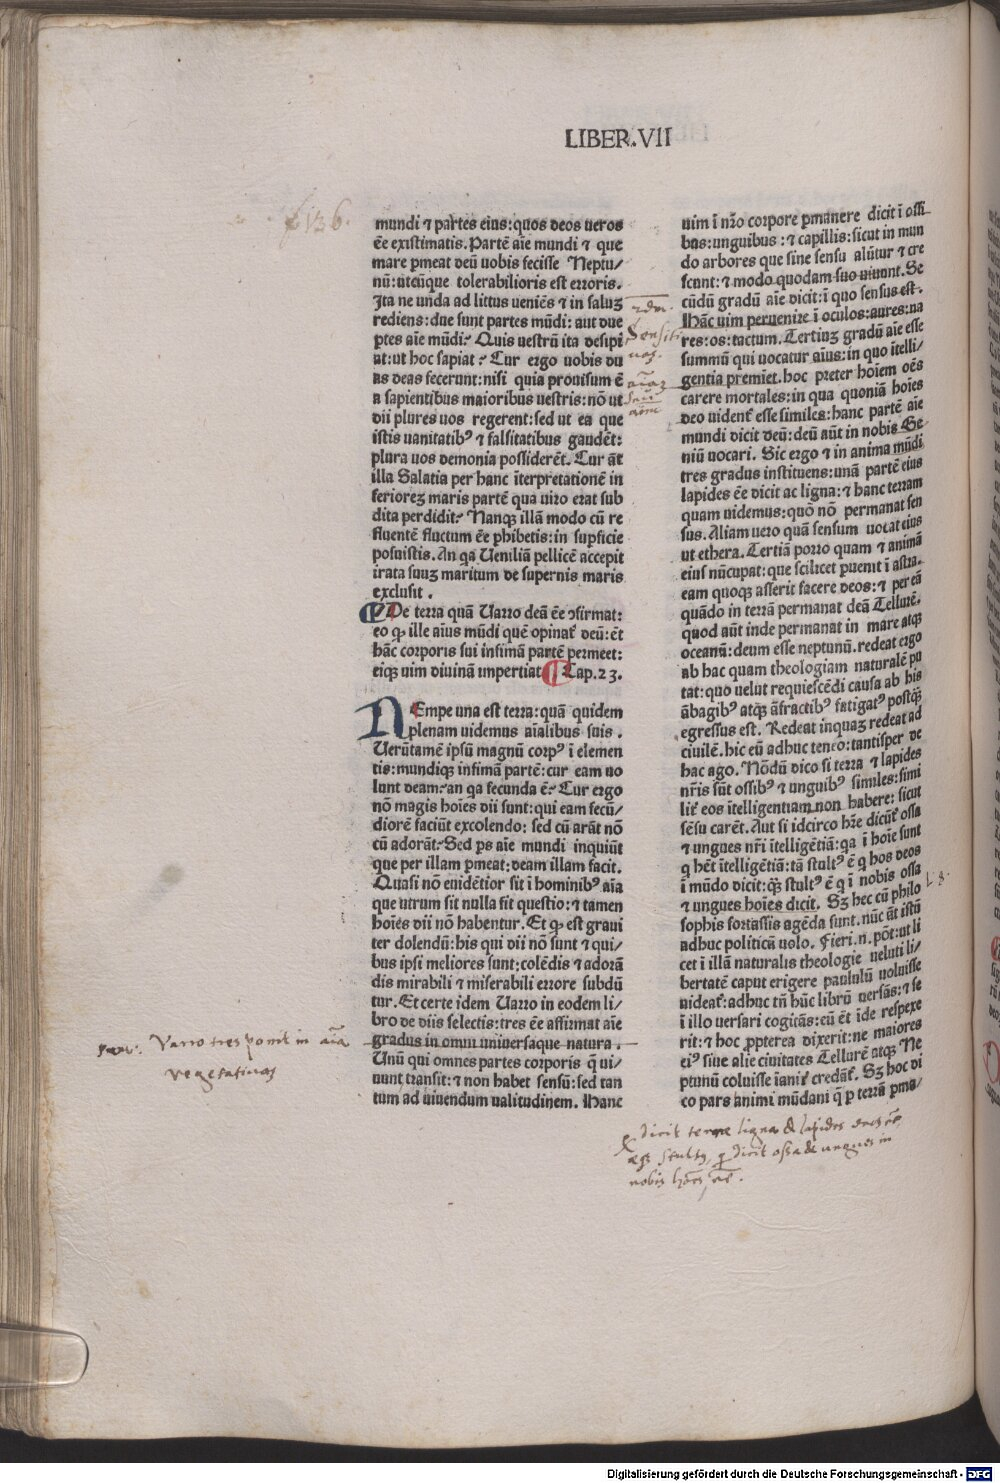 LIBER.VII
mundi ⁊ partes eius: quos deos ueros
ēe existimatis. Partē aīe mundi ⁊ que
mare ꝑmeat deū uobis fecisse Neptu/
nū: utcūque tolerabilioris est erroris.
Ita ne unda ad littus ueniēs ⁊ in salum
rediens: due sunt partes mūdi: aut due
ꝑtes aīe mūdi? Quis uestrū ita desipi
at: ut hoc sapiat? Cur ergo uobis du
as deas fecerunt: nisi quia prouisum ē
a sapientibus maioribus uestris: nō ut
dii plures uos regerent: sed ut ea que
istis uanitatibꝰ ⁊ falsitatibus gaudēt:
plura uos demonia possiderēt. Cur āt
illa Salatia per hanc īterpretationē in
feriorez maris partē qua uiro erat sub
dita perdidit? Nanqꝫ illā modo cū re
fluentē fluctum ēe ꝑhibetis: in suꝑficie
posuistis. An qa Ueniliā pellicē accepit
irata suuz maritum de supernis maris
exclusit.
De terra quā Uarro deā ēe ↄfirmat:
eo ꝙ ille aīus mūdi quē opinat᷑ deū: ēt
hāc corporis sui infimā partē permeet:
eiqꝫ uim diuinā impertiat Cap. 23.
NEmpe una est terra: quā quidem
plenam uidemus aīalibus suis.
Uerūtamē ipsū magnū corpꝰ ī elemen
tis: mundiqꝫ infimā partē: cur eam uo
lunt deam? an qa fecunda ē? Cur ergo
nō magis hoīes dii sunt: qui eam fecū/
diorē faciūt excolendo: sed cū arāt nō
cū adorāt? Sed ꝑs aīe mundi inquiūt
que per illam ꝑmeat: deam illam facit.
Quasi nō euidētior sit ī hominibꝰ aīa
que utrum sit nulla fit questio: ⁊ tamen
hoīes dii nō habentur. Et ꝙ est graui
ter dolendū: his qui dii nō sunt ⁊ qui/
bus ipsi meliores sunt: colēdis ⁊ adorā
dis mirabili ⁊ miserabili errore subdū
tur. Et certe idem Uarro in eodem li/
bro de diis selectis: tres ēe affirmat aīe
gradus in omni uniuersaque natura.
Unū qui omnes partes corporis q̄ ui/
uunt transit: ⁊ non habet sensū: sed tan
tum ad uiuendum ualitudinem. Hanc
uim ī nr̄o corpore ꝑmanere dicit ī ossi
bus: unguibus: ⁊ capillis: sicut in mun
do arbores que sine sensu alūtur ⁊ cre
scunt: ⁊ modo quodam suo uiuunt. Se
cūdū gradū aīe dicit: ī quo sensus est.
Hāc uim peruenire ī oculos: aures: na
res: os: tactum. Tertiuz gradū aīe esse
summū qui uocatur aīus: in quo ītelli/
gentia premīet. hoc preter hoīem oēs
carere mortales: in qua quoniā hoīes
deo uident᷑ esse similes: hanc partē aīe
mundi dicit deū: deū aūt in nobis Ge
niū uocari. Sic ergo ⁊ in anima mūdi
tres gradus instituens: unā partē eius
lapides ēe dicit ac ligna: ⁊ hanc terram
quam uidemus: quo nō permanat sen
sus. Aliam uero quā sensum uocat eius
ut ethera. Tertiā porro quam ⁊ animā
eius nūcupat: que scilicet ꝑuenit ī astra.
eam quoqꝫ asserit facere deos: ⁊ per eā
quādo in terrā permanat deā Tellurē.
quod aūt inde permanat in mare atqꝫ
oceanū: deum esse neptunū. redeat ergo
ab hac quam theologiam naturalē pu
tat: quo uelut requiescēdi causa ab his
ābagibꝰ atqꝫ āfractibꝰ fatigatꝰ postqꝫ̄
egressus est. Redeat inquaz redeat ad
ciuilē. hic eū adhuc teneo: tantisper de
hac ago. Nōdū dico si terra ⁊ lapides
nr̄is sūt ossibꝰ ⁊ unguibꝰ similes: simi
lit᷑ eos ītelligentiam non habere: sicut
sēsu carēt. Aut si idcirco hr̄e dicūt᷑ ossa
⁊ ungues nr̄i ītelligētiā: qa ī hoīe sunt
q hēt ītelligētiā: tā stultꝰ ē q hos deos
ī mūdo dicit: qꝫ̄ stultꝰ ē q ī nobis ossa
⁊ ungues hoīes dicit. Sꝫ hec cū philo
sophis fortassis agēda sunt. nūc āt istū
adhuc politicū uolo. Fieri .n. pōt: ut li
cet ī illā naturalis theologie ueluti li/
bertatē caput erigere paululū uoluisse
uideat᷑: adhuc tn̄ hūc librū uersās: ⁊ se
ī illo uersari cogitās: eū ēt īde respexe
rit: ⁊ hoc ꝓpterea dixerit: ne maiores
eiꝰ siue alie ciuitates Tellurē atqꝫ Ne
ptunū coluisse īanit᷑ credāt᷑. Sꝫ hoc di
co pars animi mūdani q̄ ꝑ terrā ꝑma/
136.
Varro tres ponit in aīa
vegetatiuaꝫ
dicit terra ligna & lapides deos
nobis
Digitalisierung gefördert durch die Deutsche Forschungsgemeinschaft - DFG